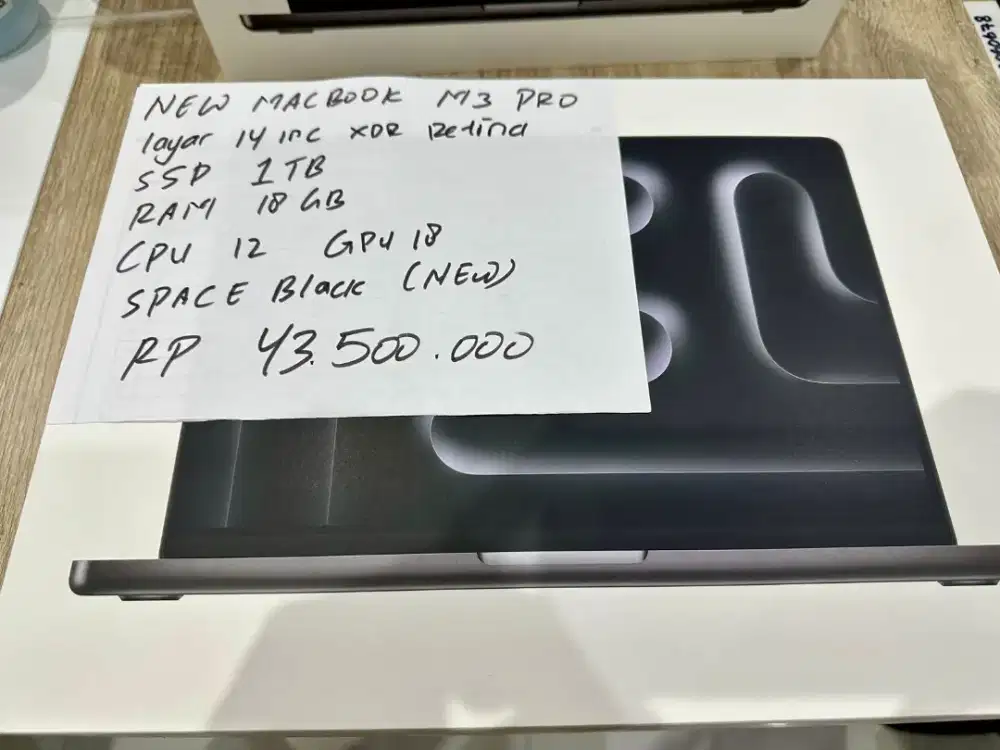 NEW MACBOOK M3 PRO
layar 14 inc XDR Retina
SSD 1TB
RAM 18 GB
CPU 12 GPU 18
SPACE Black (NEW)
RP 43.500.000